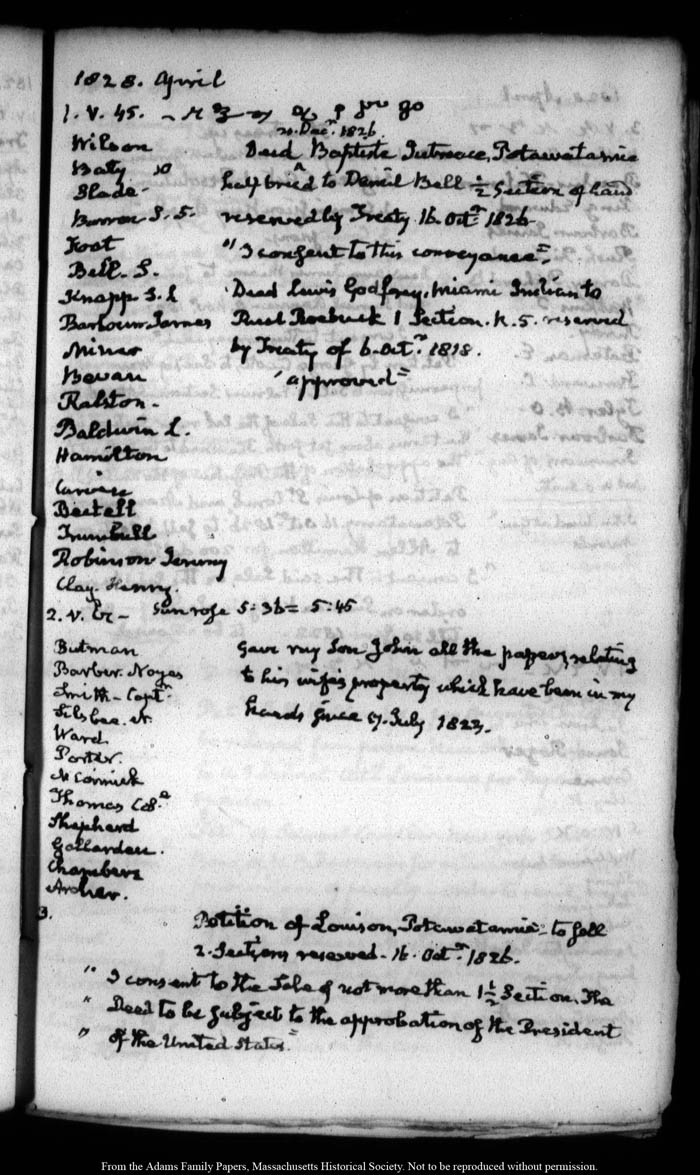 1828. April
1. V. 45.
20. Dec.r 1826.
Wilson
Baty
Slade-
Borror S. 5.
Foot
Bell. S.
Knapp S. L
Barbour James
Minor
Bevan
Ralston.
Baldwin L.
Hamilton
Bectell
Trumbull
Robinson Jeremy
Clay. Henry.
Deed Baptiste Potawatamie
half breed to Daniel Bell ½ Section of land
reserved by Treaty 16. Oct.r 1826.
"I consent to this conveyance".
Deed Lewis Godfrey, Miami Indian to
Roebuck 1 Section. N. 5. reserved
by Treaty of 6. Oct.r 1818.
"approved"
2. V. Sun rose 5:36= 5:45
Butman
Barber. Noyes
Smith- Capt.n
Silsbee. N.
Ward
Porter.
McCormick
Thomas
Shepherd
Gallardeu.
Chambers
Archer.
Gave my Son John all the papers, relating
to his wife's property which have been in my
hands since 17. July 1823.
3.
Petition of Louison, Potawatamie- to sell
2. Sections reserved- 16. Oct.r 1826.
" I consent to the Sale of not more than 1½ Section. The
" Deed to be subject to the approbation of the President
" of the United States."
From the Adams Family Papers, Massachusetts Historical Society. Not to be reproduced without permission.